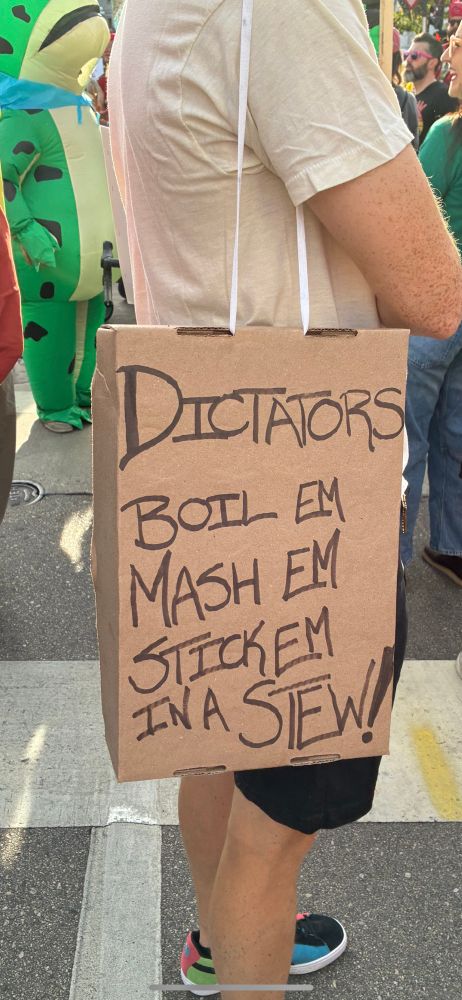 DICTATORS
BOIL EM
MASH EM
STICK EM
IN A STEW!